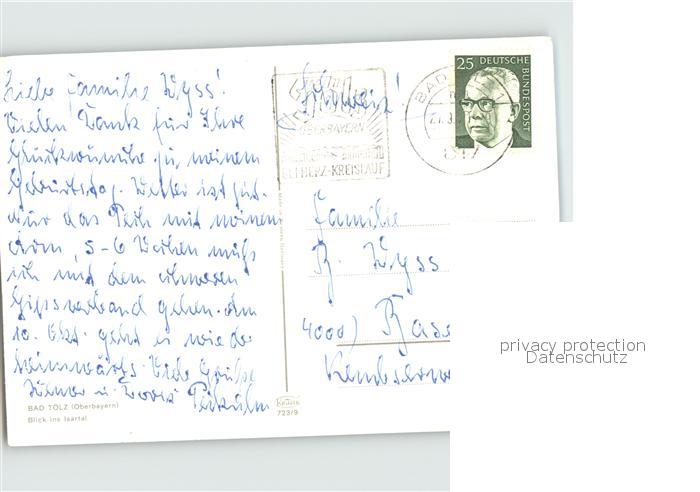 Liebe Familie Wyss!
Vielen Dank für Ihre
Glückwünsche zu meinem
Geburtstag. Wetter ist gut.
Nur das Pech mit meinem
Arm, 5-6 Wochen muß
ich mit dem schweren
Gipsverband gehen. Am
10. Okt. geht es wieder
heimwärts. Viele Grüße
BAD TÖLZ (Oberbayern)
Blick ins Isartal
Schweiz!
OBERBAYERN
HERZ-KREISLAUF
BAD
817
25 DEUTSCHE
BUNDESPOST
Familie
R. Wyss
4000) Base
Krüger
723/9
privacy protection
Datenschutz